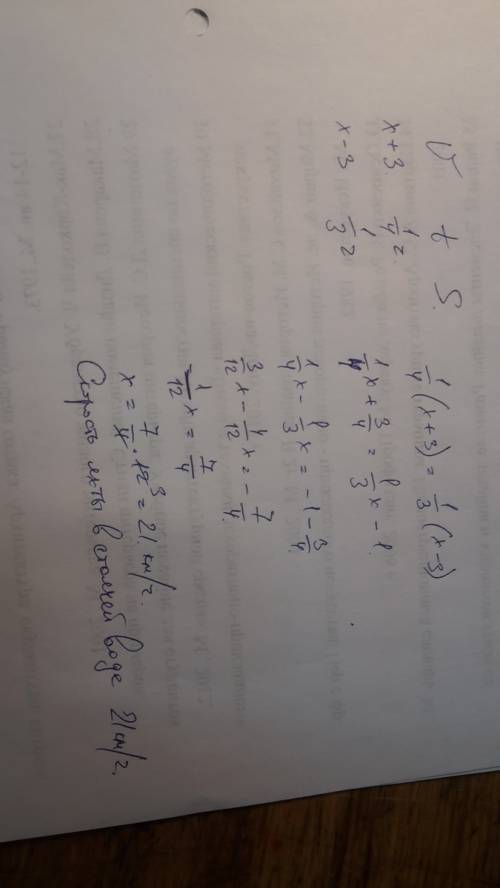 V t S
x+3 1/4 ч.
x-3 1/3 ч
1/4 (x+3) = 1/3 (x-3)
1/4 x + 3/4 = 1/3 x - 1
1/4 x - 1/3 x = -1 - 3/4
3/12 x - 4/12 x = - 7/4
- 1/12 x = 7/4
x = 7/4 · 12 3 = 21 км/ч.
Скорость яхты в стоячей воде 21 км/ч.